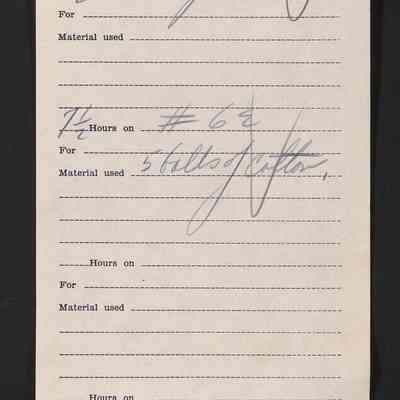 For
Material used
7 1/2 Hours on # 62
For
Material used 5 balls of cotton,
Hours on
For
Material used
Hours on